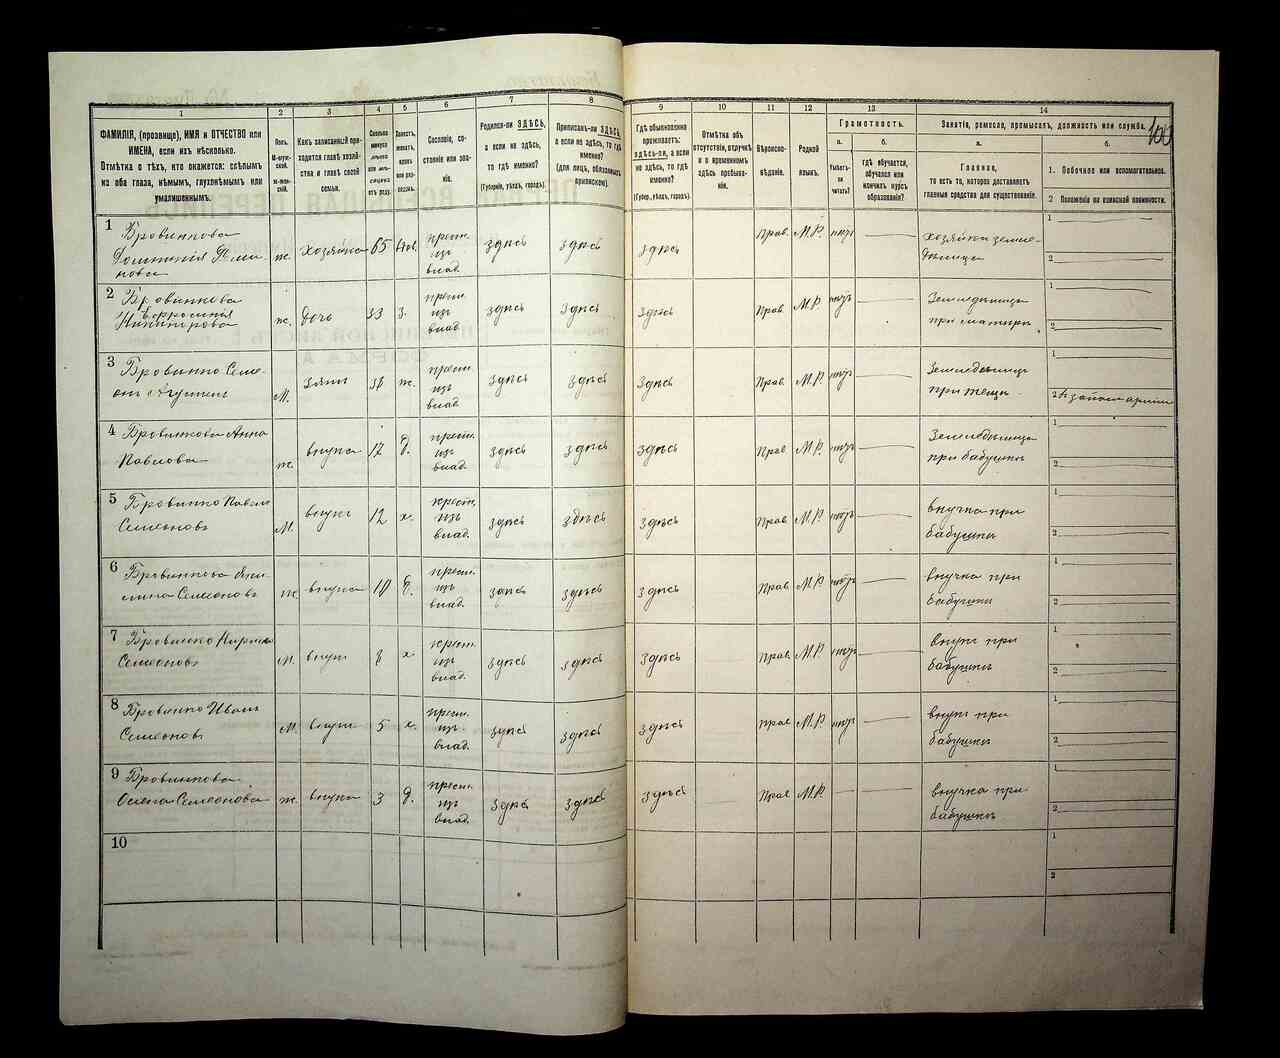 1 2 3 4 5 6 7 8 9 10 11 12 13 14
ФАМИЛІЯ, (прозвище), ИМЯ и ОТЧЕСТВО или
ИМЕНА, если ихъ нѣсколько.
Отмѣтка о тѣхъ, кто окажется: слѣпымъ
на оба глаза, нѣмымъ, глухонѣмымъ или
умалишеннымъ.
Полъ.
М-мужской.
Ж-женскій.
Какъ записанный приходится главѣ хозяйства и главѣ своей
семьи.
Сословіе, состояніе или званіе.
Родился-ли ЗДѢСЬ,
а если не здѣсь,
то гдѣ именно?
(Губернія, уѣздъ, городъ).
Приписанъ-ли ЗДѢСЬ,
а если не здѣсь, то гдѣ
именно?
(для лицъ, обязанныхъ
припискою).
Гдѣ обыкновенно
проживаетъ:
здѣсь-ли, а если
не здѣсь, то гдѣ
именно?
(Губер., уѣздъ, городъ).
Отмѣтка объ
отсутствіи, отлучкѣ
и о временномъ
здѣсь пребываніи.
Вѣроисповѣданіе.
Родной
языкъ.
Грамотность.
а.
Умѣетъ-ли
читать?
б.
гдѣ обучается,
обучался или
кончилъ курсъ
образованія?
Занятія, ремесло, промыселъ, должность или служба.
а.
Главное,
то есть то, которое доставляетъ
главныя средства для существованія.
б.
1. Побочное или вспомогательное.
2 Положеніе по воинской повинности.
100
1 Бровинкова
ж. хозяйка 65 вдов. крест. изъ влад. здѣсь здѣсь здѣсь Прав. М.Р. нѣтъ хозяйка 1 2
2 Бровинкова
Никифорова
ж. дочь 33 з. крест. изъ влад. здѣсь здѣсь здѣсь Прав. М.Р. нѣтъ при матери 1 2
3 Бровинко Семенъ
М. зять 38 ж. крест. изъ влад. здѣсь здѣсь здѣсь Прав. М.Р. нѣтъ при тещѣ 1 2
4 Бровинкова Анна
Павлова
ж. внука 17 д. крест. изъ влад. здѣсь здѣсь здѣсь Прав. М.Р. нѣтъ при бабушкѣ 1 2
5 Бровинко Павелъ
Семеоновъ
М. внукъ 12 х. крест. изъ влад. здѣсь здѣсь здѣсь Прав. М.Р. нѣтъ внучка при бабушкѣ 1 2
6 Бровинкова
Семеоновъ
ж. внука 10 д. крест. изъ влад. здѣсь здѣсь здѣсь Прав. М.Р. нѣтъ внучка при бабушкѣ 1 2
7 Бровинко Кирило
Семеоновъ
М. внукъ 8 х. крест. изъ влад. здѣсь здѣсь здѣсь Прав. М.Р. нѣтъ внукъ при бабушкѣ 1 2
8 Бровинко Иванъ
Семеоновъ
М. внукъ 5 х. крест. изъ влад. здѣсь здѣсь здѣсь Прав. М.Р. нѣтъ внукъ при бабушкѣ 1 2
9 Бровинкова
Семеонова
ж. внука 3 д. крест. изъ влад. здѣсь здѣсь здѣсь Прав. М.Р. внучка при бабушкѣ 1 2
10 1 2